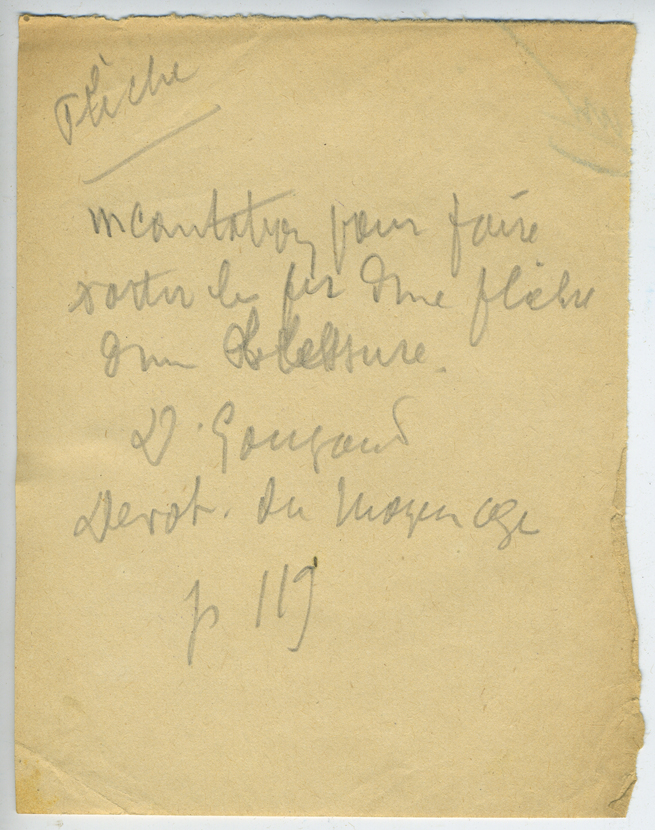 Flèche
incantation pour faire
sortir le fer d'une flèche
d'une blessure.
D. Gougaud
Devot. du Moyen age
p 119